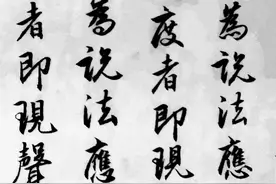 為說法應
度者即現
為說法應
者即現聲